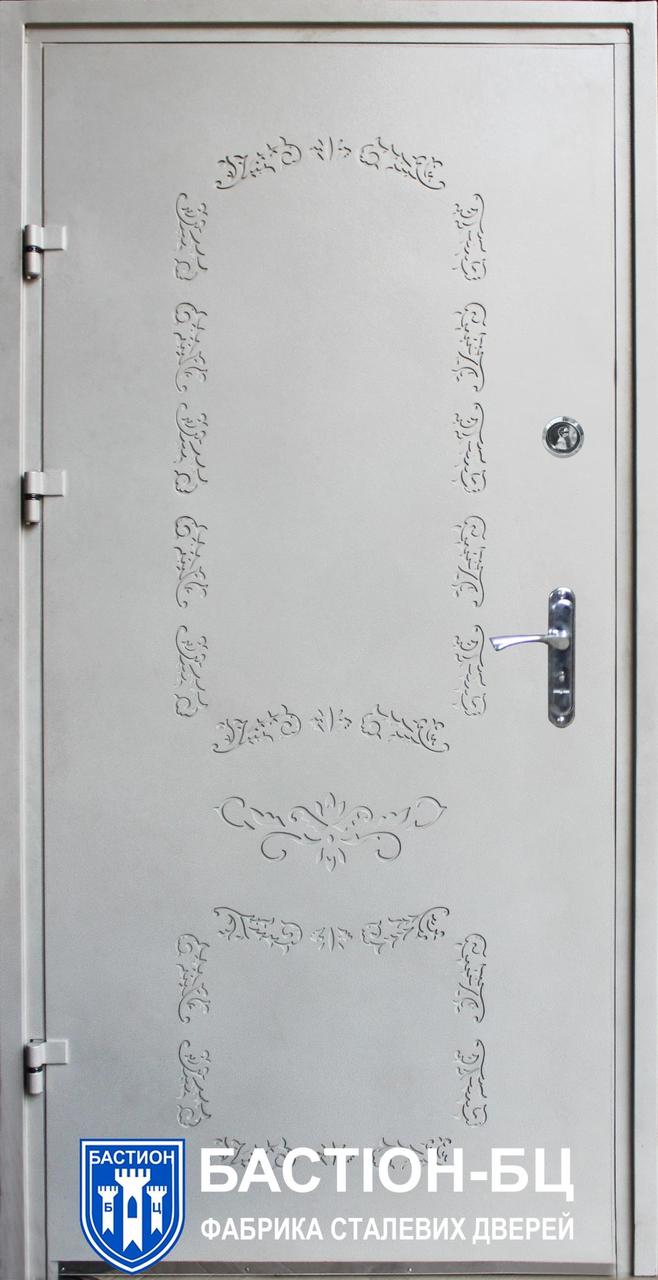 БАСТИОН
Б Ц
БАСТІОН-БЦ
ФАБРИКА СТАЛЕВИХ ДВЕРЕЙ